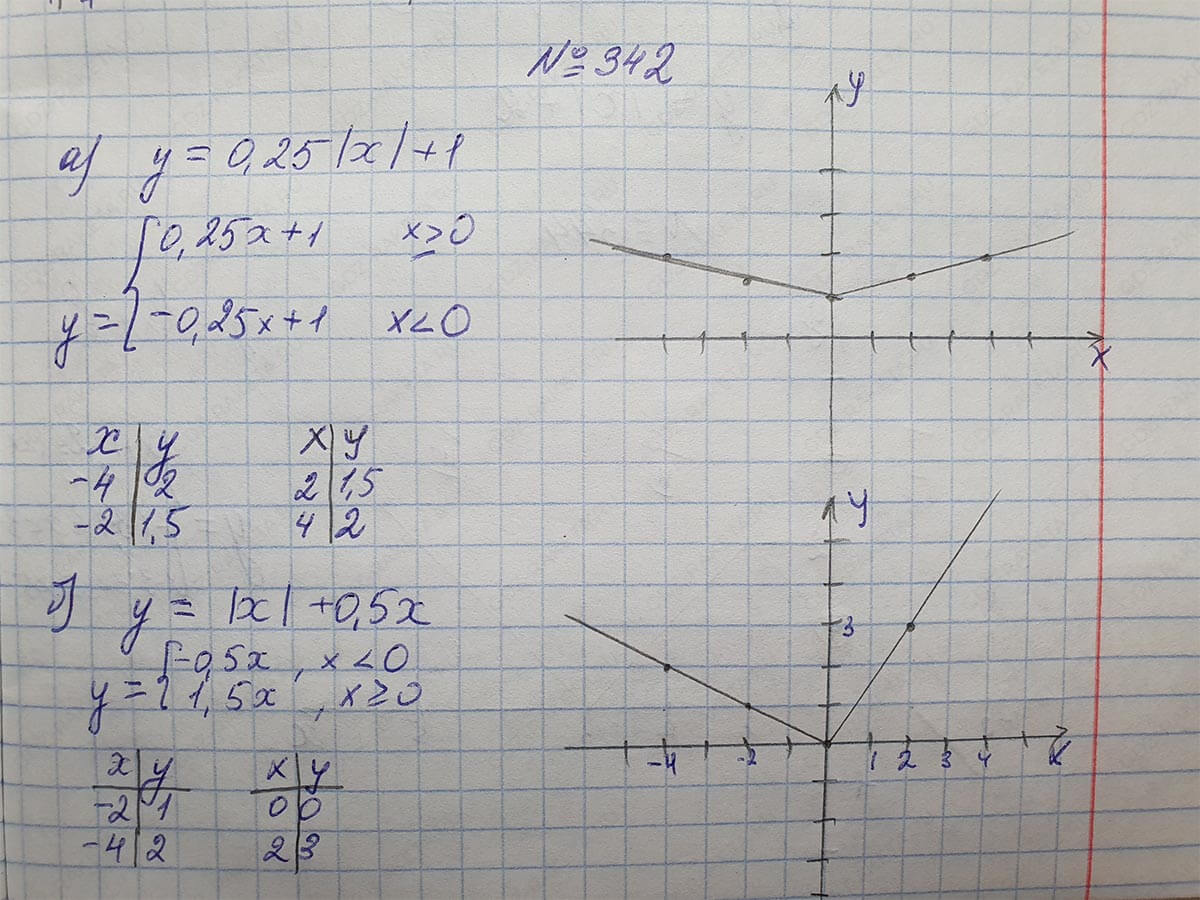 №342
а) y = 0,25|x|+1
0,25x+1 x≥0
y = {
-0,25x+1 x<0
x | y
-4 | 2
-2 | 1,5
x | y
2 | 1,5
4 | 2
y
x
б) y = |x| +0,5x
-0,5x , x<0
y = { 1,5x , x≥0
x | y
-2 | 1
-4 | 2
x | y
0 | 0
2 | 3
y
3
-4 -2 1 2 3 4 x